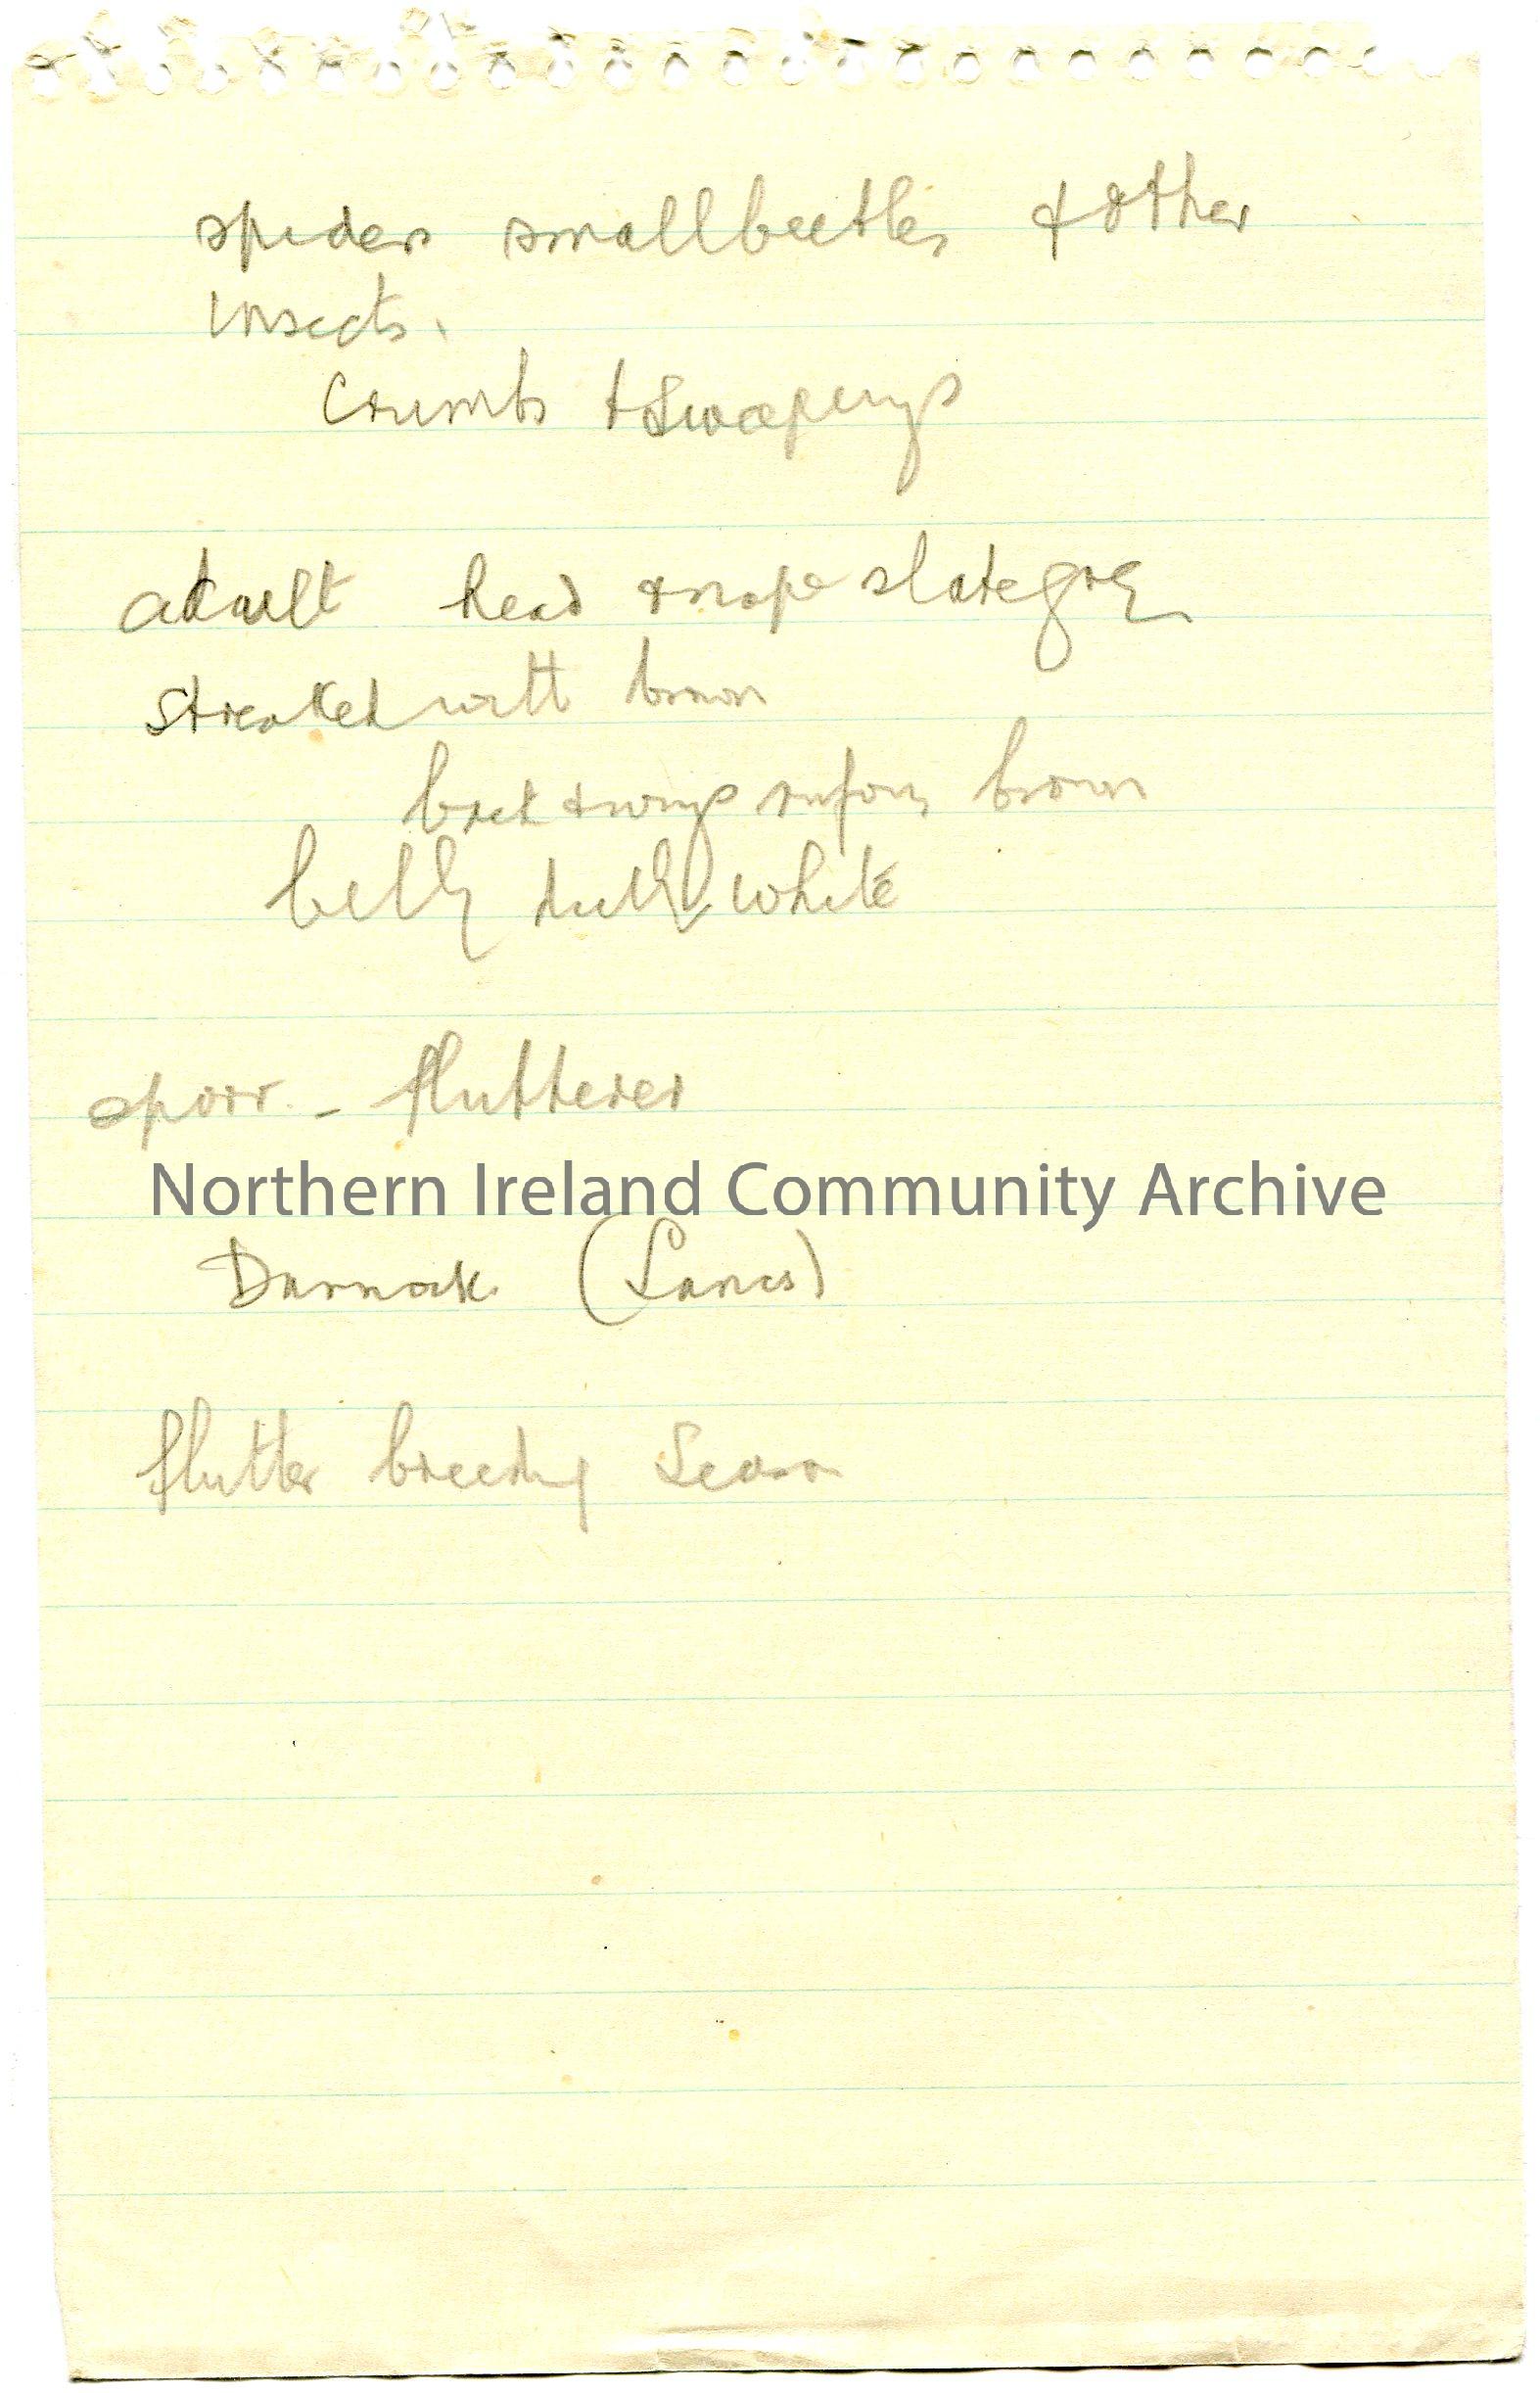 spiders small beetles & other
insects.
Crumbs & Sweepings
adult head & nape slate grey
streaked with brown
back & wings rufous brown
belly dull white
sparr. - flutterer
Northern Ireland Community Archive
Dunnock (Lancs)
flutter breeding Season